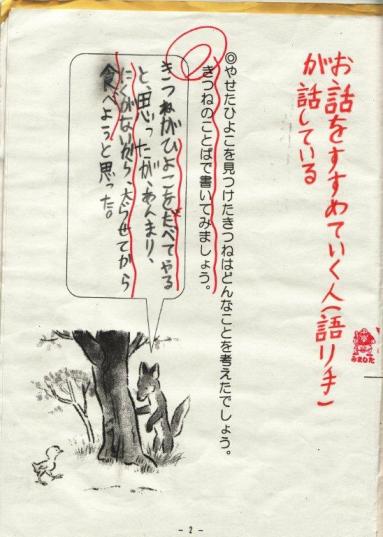 お話をすすめていく人(語り手)
が話している
◎やせたひよこを見つけたきつねはどんなことを考えたでしょう。
きつねのことばで書いてみましょう。
きつねがひよこをたべてやる
と、思ったが、あんまり、
にくがないから、太らせてから
食べようと思った。
みました
- 2 -